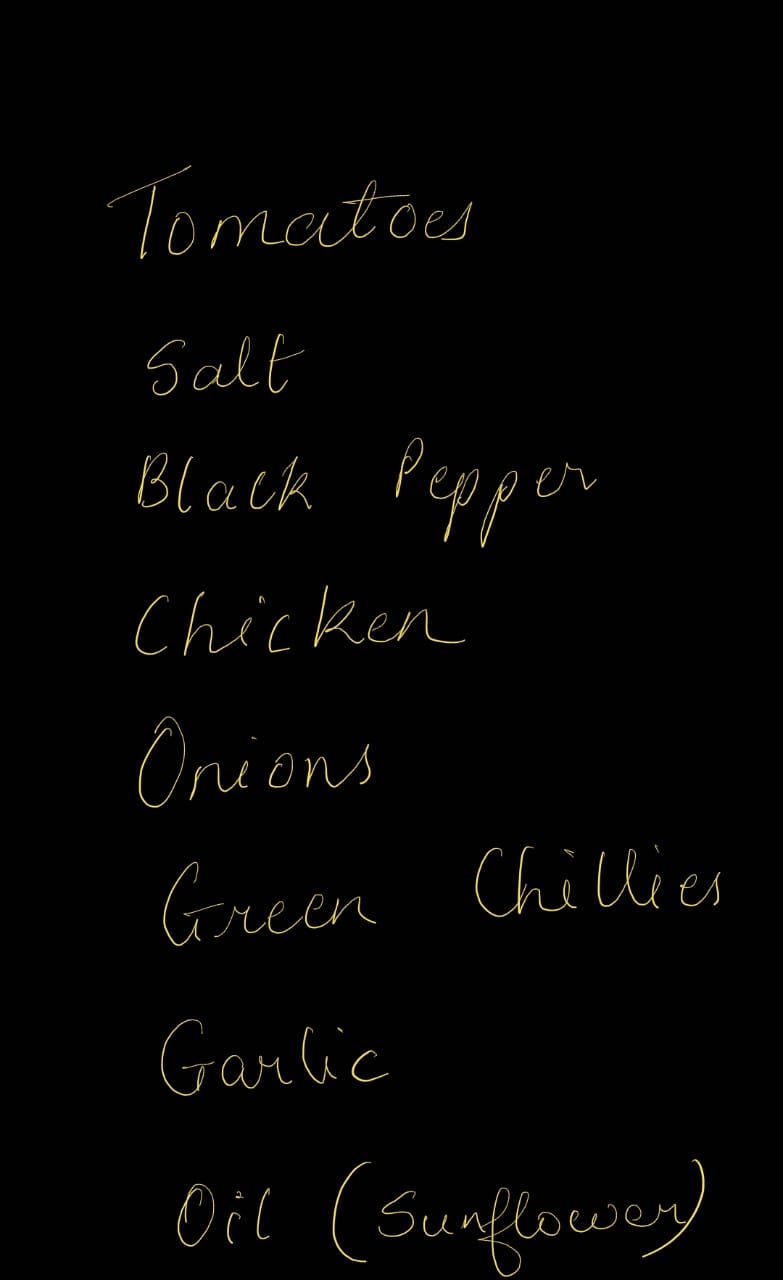 Tomatoes
Salt
Black Pepper
Chicken
Onions
Green Chillies
Garlic
Oil (Sunflower)